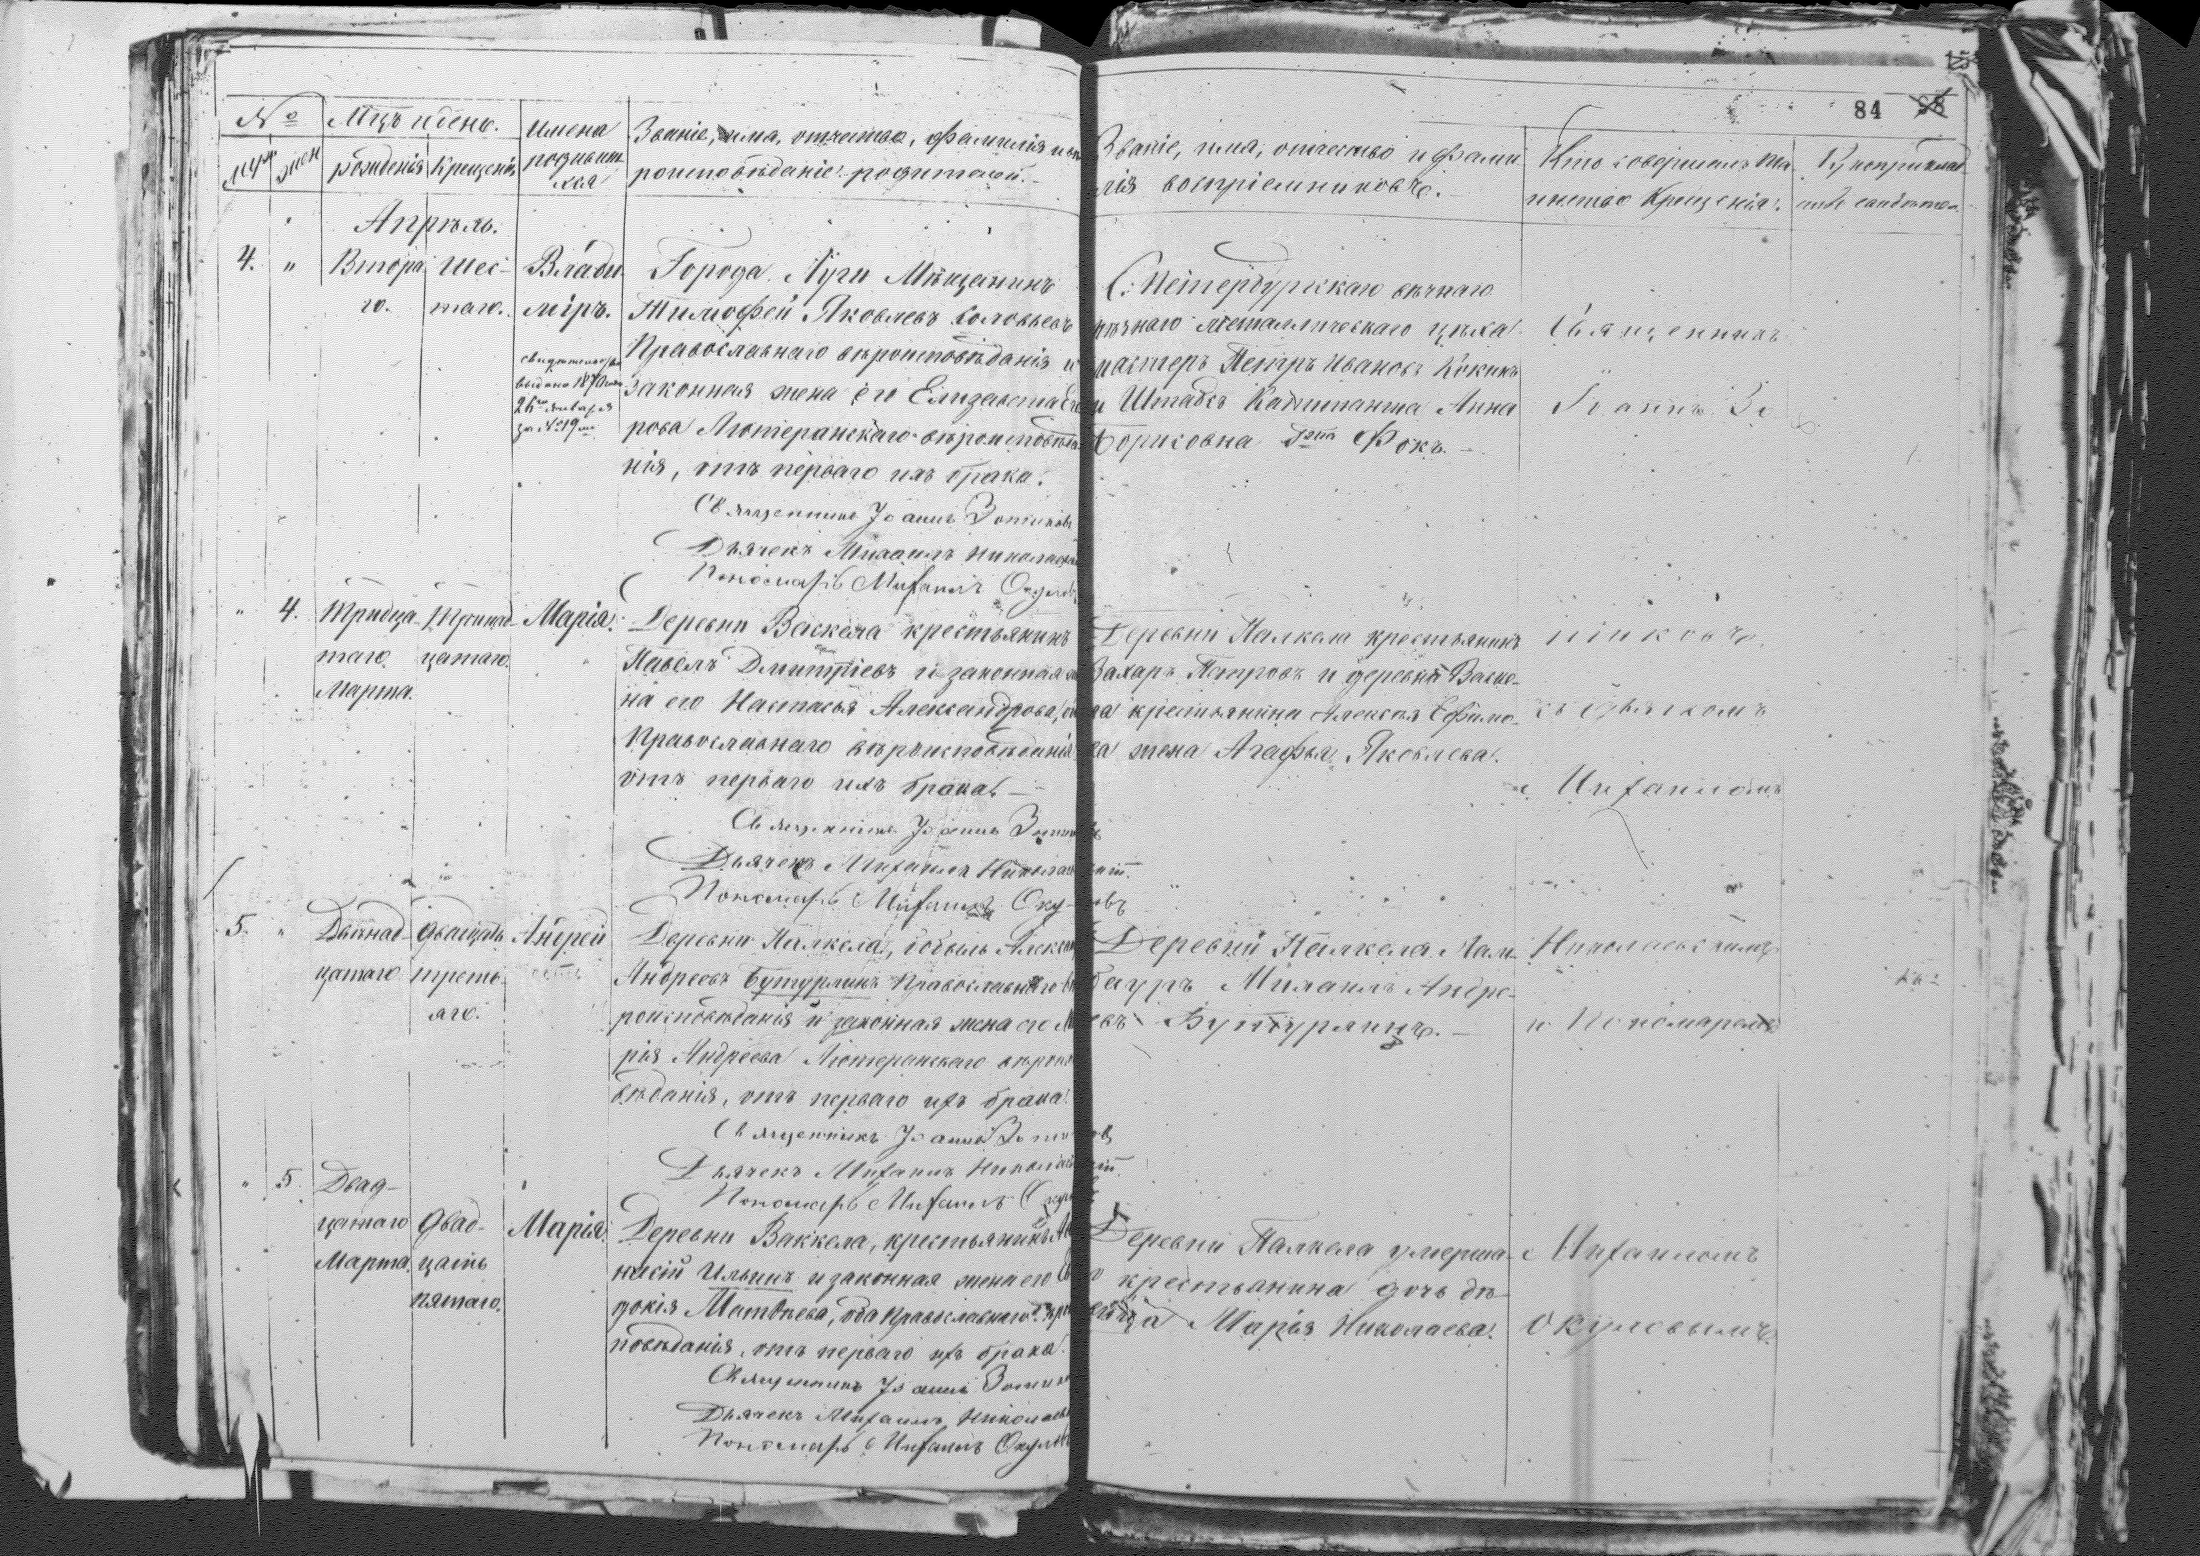 84
№
Мцъ и день.
муж
жен
рожденія
крещенія
Имена родившихся
Званіе, имя, отчество, фамилія и вѣ-
роисповѣданіе родителей.
Званіе, имя, отчество и фами-
лія воспріемниковъ.
Кто совершалъ та-
инство Крещенія.
Апрѣль.
4.
"
Втора-
го.
Шес-
таго.
Влади-
міръ.
свидѣтельство
выдано 1870 года
26го января
за № 19
Города Луги Мѣщанинъ
Тимофей Яковлевъ Соловьевъ
Православнаго вѣроисповѣданія и
законная жена его Елизавета
рова Лютеранскаго вѣроисповѣда-
нія, отъ перваго ихъ брака.
Священникъ Іоаннъ Зотиковъ
Дьячекъ Михаилъ Николаевскій
Пономарь Михаилъ Окуловъ
С. Петербургскаго вѣчнаго
мѣднаго металлическаго цѣха
мастеръ Петръ Ивановъ Кокинъ
и Штабсъ Капитанша Анна
Борисовна Фокъ.
Священникъ
Іоаннъ Зо-
"
4.
Тридца-
таго
Марта.
Тридцатаго.
Марія.
Деревни Васкела крестьянинъ
Павелъ Дмитріевъ и законная же-
на его Настасья Александрова, оба
Православнаго вѣроисповѣданія
отъ перваго ихъ брака.
Священникъ Іоаннъ Зотиковъ
Дьячекъ Михаилъ Николаевскій.
Пономарь Михаилъ Окуловъ
Деревни Палкела крестьянинъ
Захаръ Петровъ и деревни Васке-
ла крестьянина Алексѣя Ефимо-
ва жена Агафья Яковлева.
тиковъ
съ дьячкомъ
Михаиломъ
5.
"
Двѣнад-
цатаго
двадцать
треть-
яго.
Андрей
Деревни Палкела, бобыль Алексѣй
Андреевъ Бутурлинъ Православнаго вѣ-
роисповѣданія и законная жена его Ма-
рія Андреева Лютеранскаго вѣроис-
вѣданія, отъ перваго ихъ брака.
Священникъ Іоаннъ Зотиковъ
Дьячекъ Михаилъ Николаевскій
Пономарь Михаилъ Окуловъ
Деревни Палкела Лам-
Михаилъ Андре-
евъ Бутурлинъ.
Николаевскимъ
и Пономаремъ
"
5
Двад-
цатаго
Марта.
Двад-
цать
пятаго.
Марія.
Деревни Ваккела, крестьянинъ
Ильинъ и законная жена его Ев-
докія Матвѣева, оба Православнаго вѣроис-
повѣданія, отъ перваго ихъ брака.
Священникъ Іоаннъ Зотиковъ
Дьячекъ Михаилъ Николаевскій
Пономарь Михаилъ Окуловъ
Деревни Палкела умерша-
го крестьянина дочь дѣ-
вица Марья Николаева.
Михаиломъ
Окуловымъ.